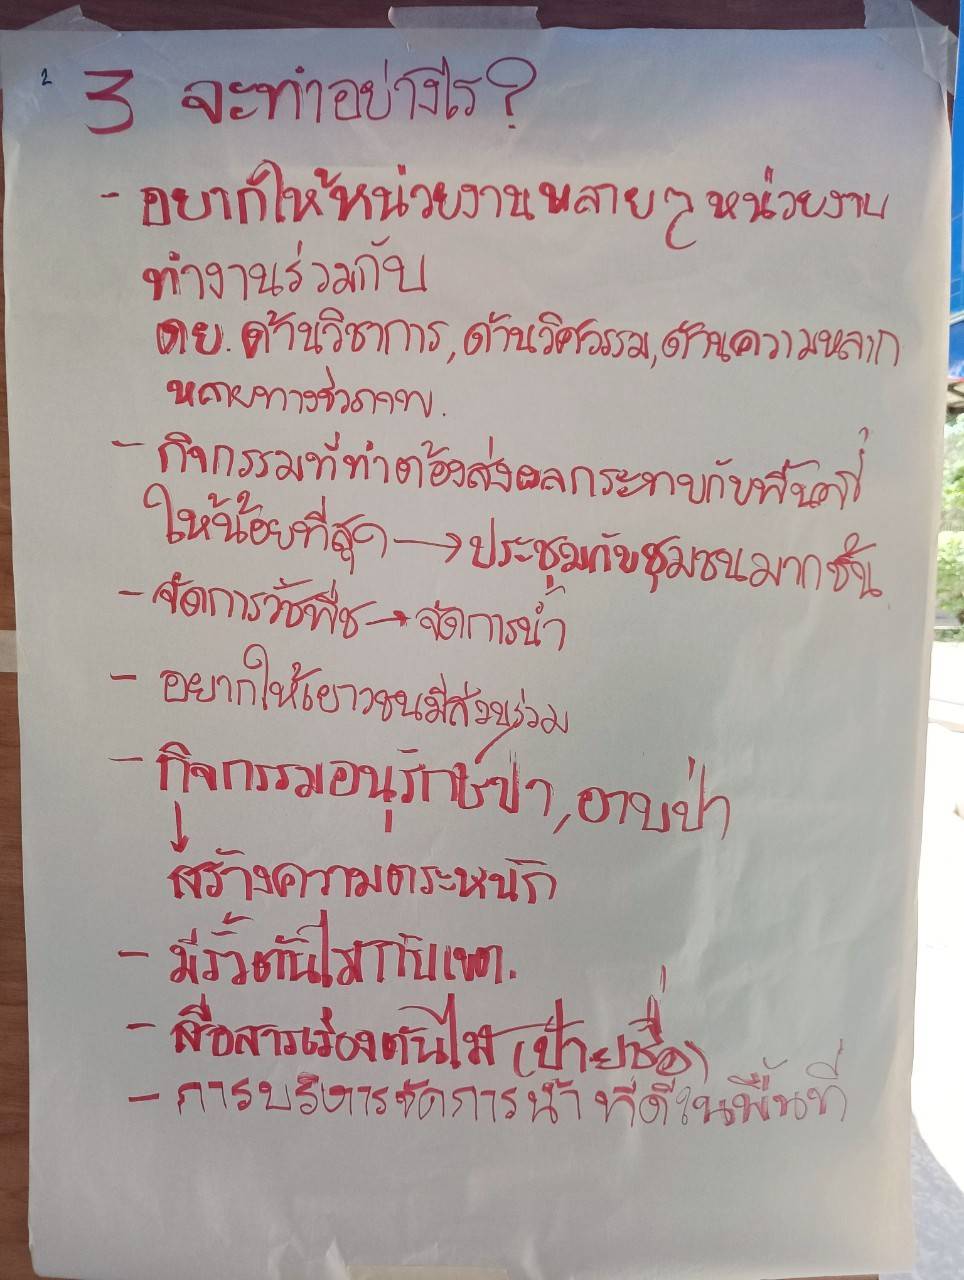 2
3 จะทำอย่างไร?
- อยากให้หน่วยงานหลายๆ หน่วยงาน
ทำงานร่วมกับ
ตย. ด้านวิชาการ, ด้านวิศวรรม, ด้านความหลาก
หลายทางชีวภาพ.
- กิจกรรมที่ทำต้องส่งผลกระทบกับพื้นที่
ให้น้อยที่สุด → ประชุมกับชุมชนมากขึ้น
- จัดการวัชพืช → จัดการน้ำ
- อยากให้เยาวชนมีส่วนร่วม
- กิจกรรมอนุรักษ์ป่า, อาบป่า
↓
สร้างความตระหนัก
- มีรั้วต้นไม้กับเขต.
- สื่อสารเรื่องต้นไม้ (ป้ายชื่อ)
- การบริหารจัดการน้ำ ที่ดีในพื้นที่